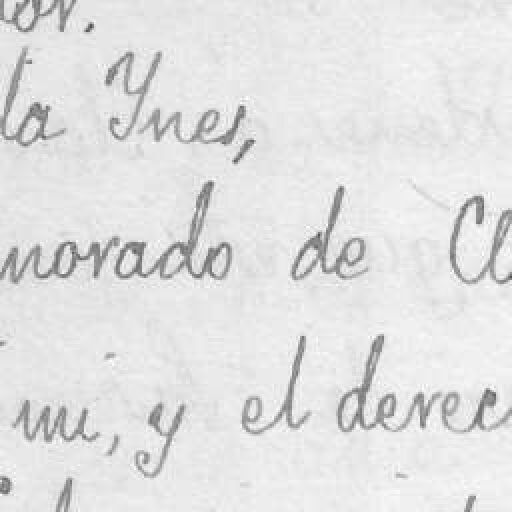 la Ynes,
morado de Cl
mi, y el derec